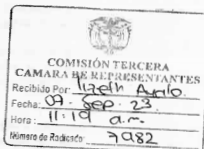 COMISIÓN TERCERA
CAMARA DE REPRESENTANTES
Recibido Por: Lizeth
Fecha: 07. Sep. 23
Hora: 11:19 a.m.
Número de Radicado 7982